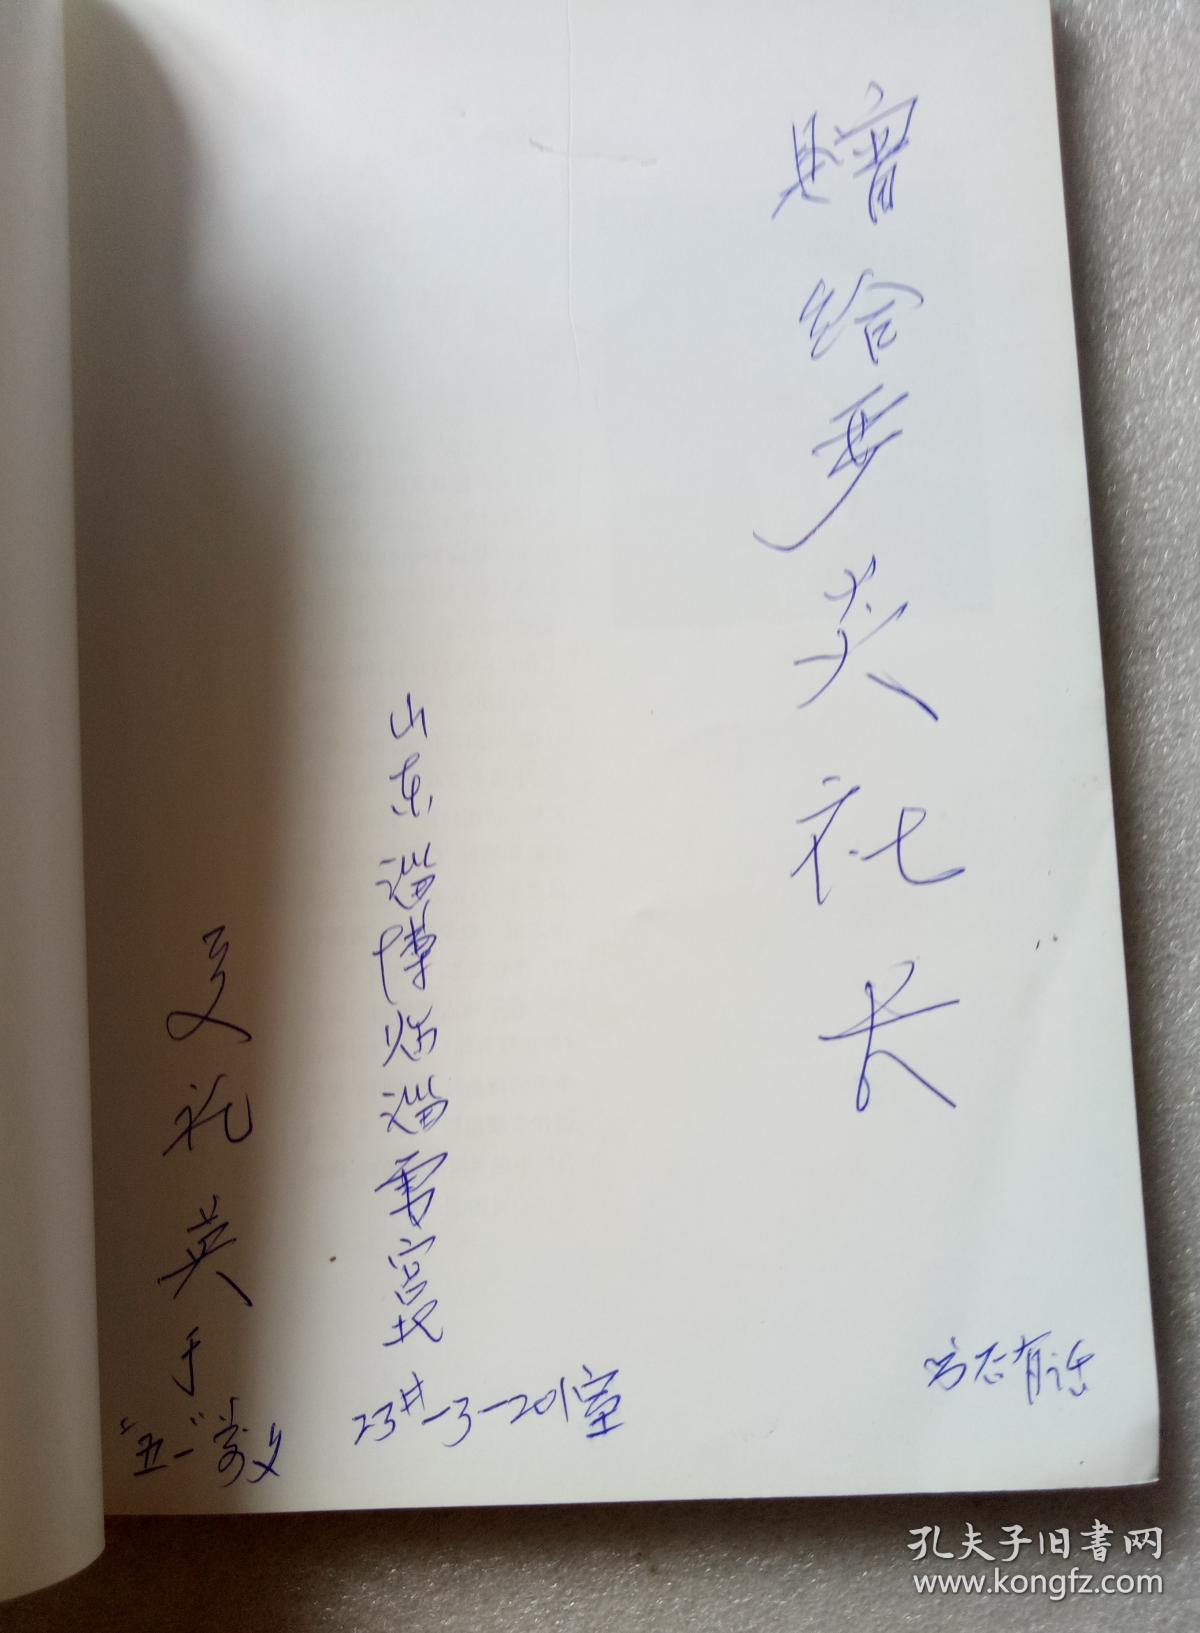 赠给要炎社长
山东淄博临淄雪宫
23#-3-201室
礼英于
"五一"
有话
孔夫子旧书网
www.kongfz.com